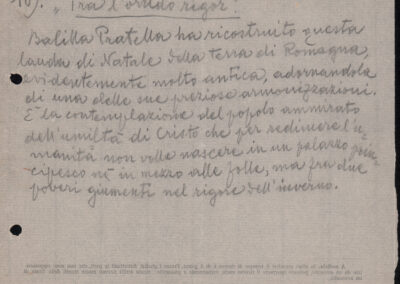 10). "Tra l'orrido rigor".
Balilla Pratella ha ricostruito questa
lauda di Natale della terra di Romagna,
evidentemente molto antica, adornandola
di una delle sue preziose armonizzazioni.
È la contemplazione del popolo ammirato
dell'umiltà di Cristo che per redimere l'u-
manità non volle nascere in un palazzo prin-
cipesco nè in mezzo alle folle, ma fra due
poveri giumenti nel rigore dell'inverno.